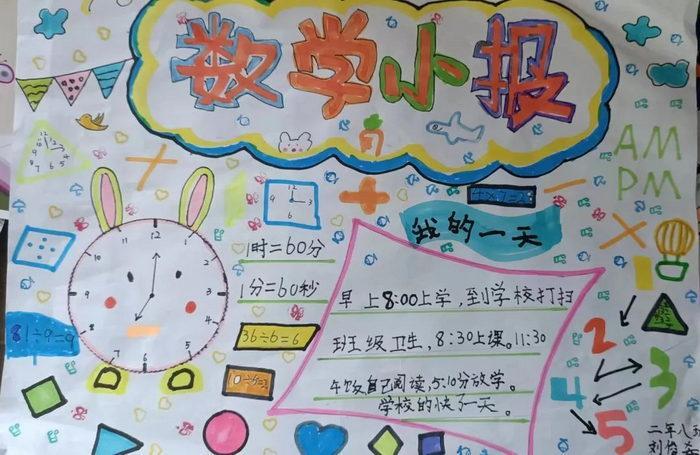 数学小报
AM
PM
12
9 3
6
4×7=28
我的一天
1时=60分
1分=60秒
81÷9=9
36÷6=6
早上8:00上学,到学校打扫
班级卫生,8:30上课。11:30
午饭自己阅读,5:10分放学。
学校的快了一天。
2
4 3
5
二年八班